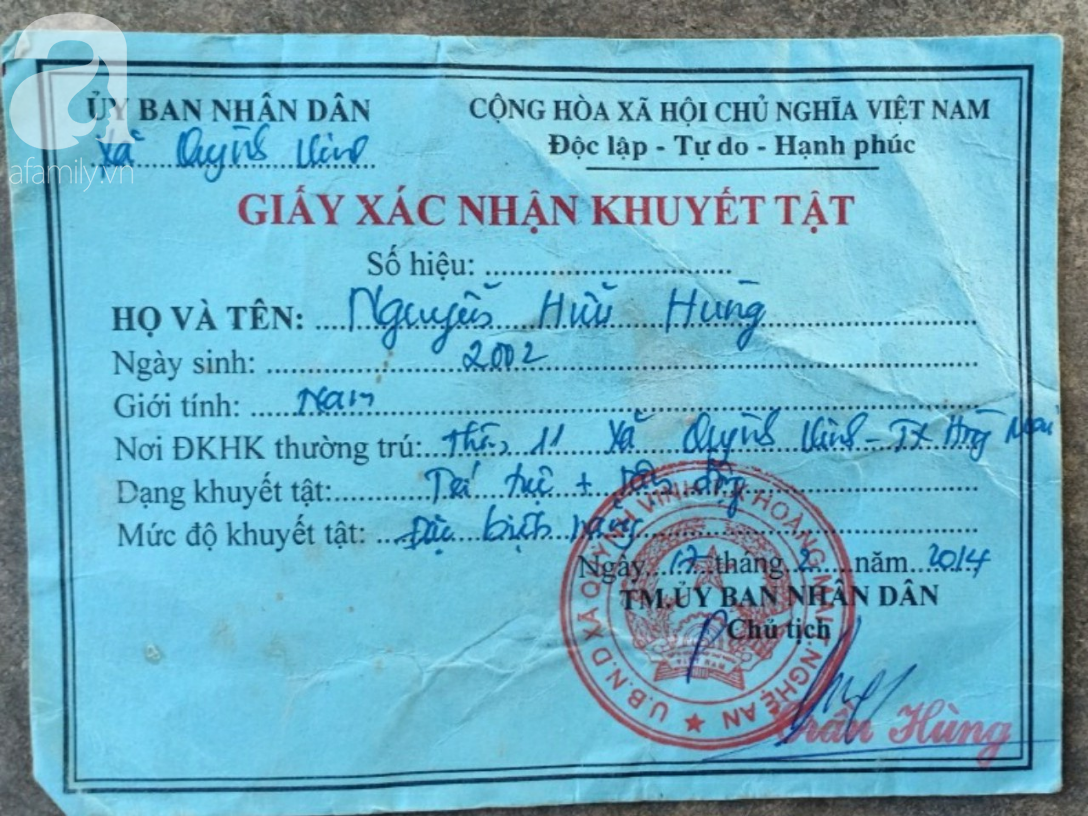 a
afamily.vn
ỦY BAN NHÂN DÂN
Xã Quỳnh Vinh
CỘNG HÒA XÃ HỘI CHỦ NGHĨA VIỆT NAM
Độc lập - Tự do - Hạnh phúc
GIẤY XÁC NHẬN KHUYẾT TẬT
Số hiệu: ..............................
HỌ VÀ TÊN: Nguyễn Hữu Hùng
Ngày sinh: 2002
Giới tính: Nam
Nơi ĐKHK thường trú: Thôn 11 Xã Quỳnh Vinh - TX Hoàng Mai
Dạng khuyết tật: Trí tuệ + vận động
Mức độ khuyết tật: Đặc biệt nặng
Ngày 17 tháng 2 năm 2014
TM.ỦY BAN NHÂN DÂN
Chủ tịch
U.B.N.D XÃ QUỲNH VINH T.X HOÀNG MAI T.NGHỆ AN
Trần Hùng